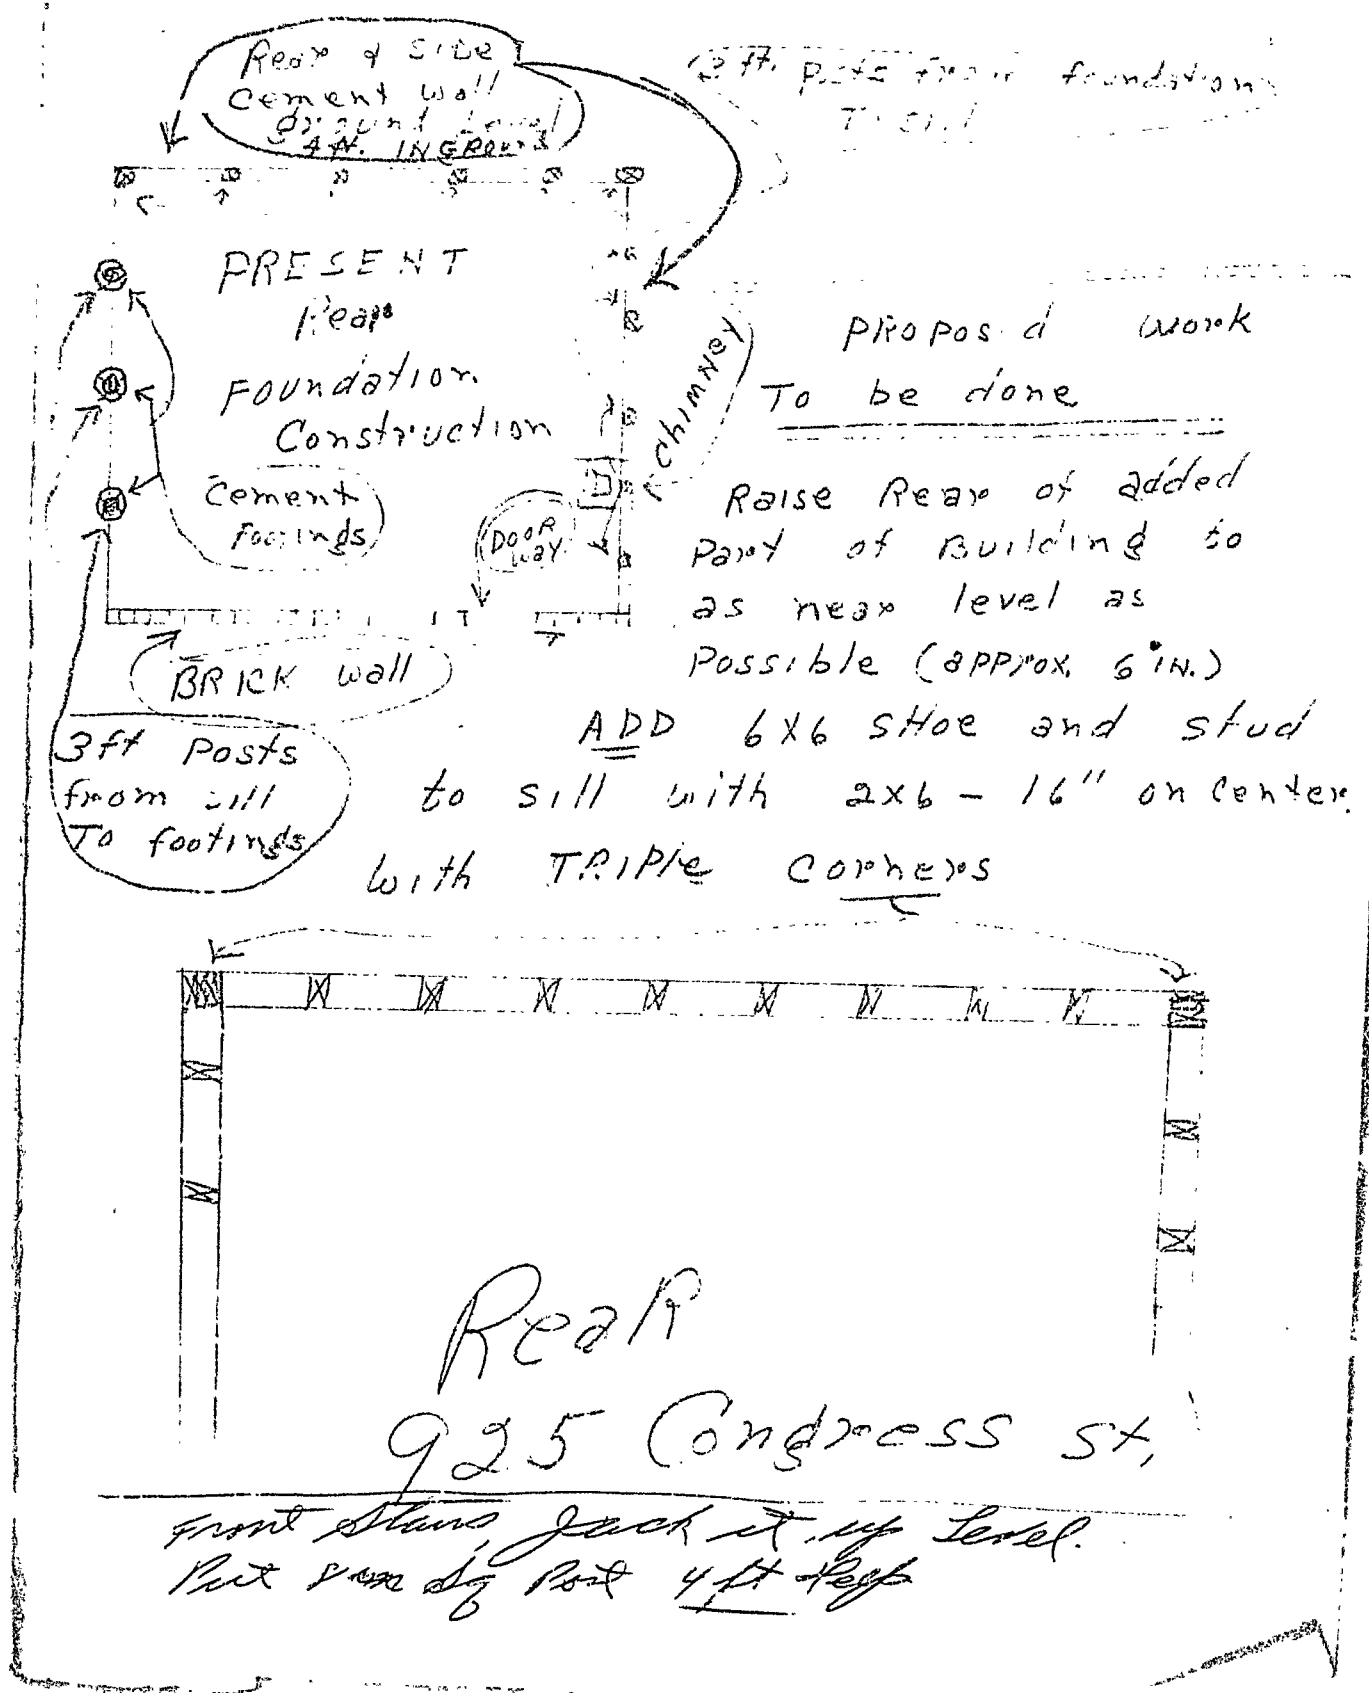 Rear & SIDE
Cement wall
ground Level
4 ft. INGROUND
posts from foundation
PRESENT
Rear
FOUNDATION
Construction
Cement
Footings
DOOR
WAY
CHIMNEY
BRICK wall
3ft Posts
from sill
To footings
PROPOSD WORK
To be done
Raise Rear of added
Part of Building to
as near level as
Possible (approx. 6 IN.)
ADD 6X6 SHOE and stud
to sill with 2x6 - 16" on Center.
with TRIPLE Corners
ReaR
925 Congress st,
Front Stairs, Jack it up Level.
Put 8 in Sq Post 4 ft deep